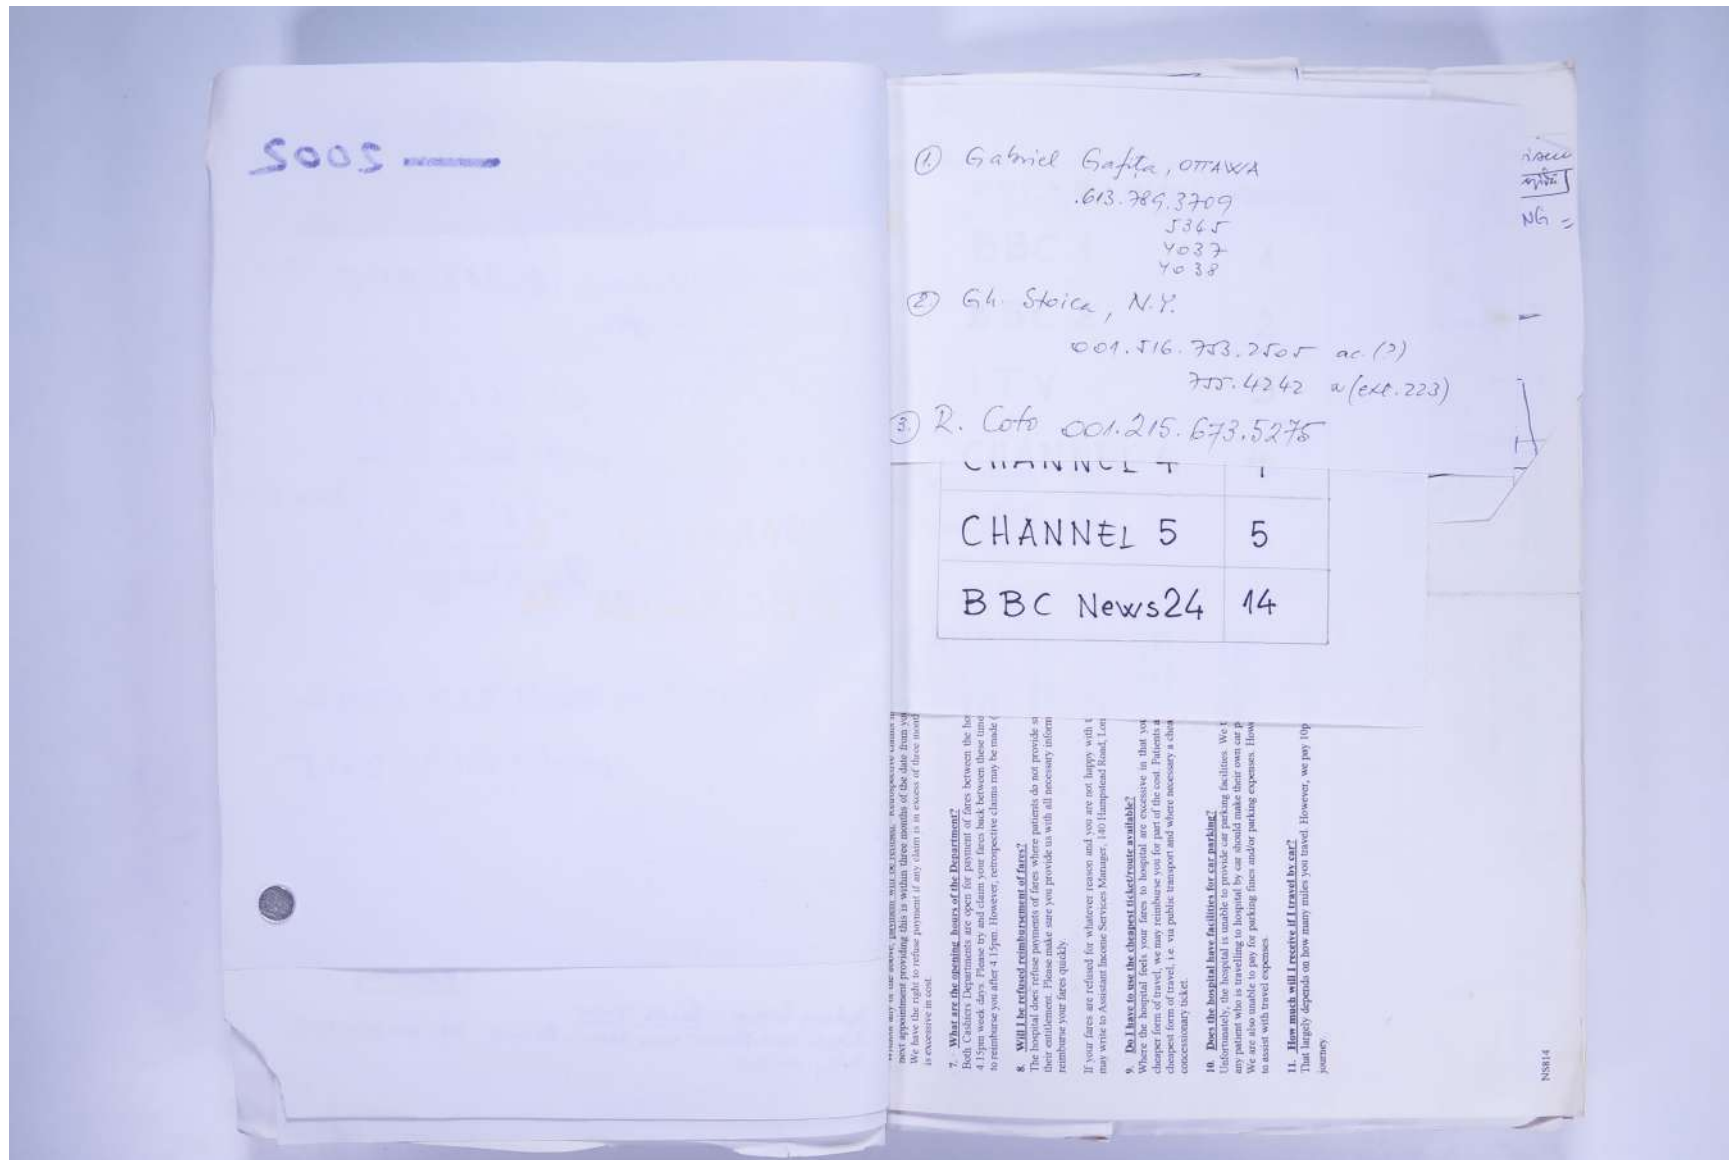 2002
① Gabriel Gafița, OTTAWA
.613.789.3709
5365
4037
4038
② Gh. Stoica, N.Y.
001.516.753.2505 ac.(?)
755.4242 w(ext.223)
③ R. Coto 001.215.673.5275
NG =
CHANNEL 4
CHANNEL 5 5
BBC News24 14
next appointment providing this is within three months of the date from
We have the right to refuse payment if any claim is in excess of three
is excessive in cost.
7. What are the opening hours of the Department?
Both Cashiers Departments are open for payment of fares between the
4.15pm week days. Please try and claim your fares back between these
to reimburse you after 4.15pm. However, retrospective claims may be made
8. Will I be refused reimbursement of fares?
The hospital does refuse payments of fares where patients do not provide
their entitlement. Please make sure you provide us with all necessary
reimburse your fares quickly.
If your fares are refused for whatever reason and you are not happy with
may write to Assistant Income Services Manager, 140 Hampstead Road,
9. Do I have to use the cheapest ticket/route available?
Where the hospital feels your fares to hospital are excessive in that
cheaper form of travel, we may reimburse you for part of the cost. Patients
cheapest form of travel, i.e. via public transport and where necessary a
concessionary ticket.
10. Does the hospital have facilities for car parking?
Unfortunately, the hospital is unable to provide car parking facilities. We
any patient who is travelling to hospital by car should make their own car
We are also unable to pay for parking fines and/or parking expenses.
to assist with travel expenses.
11. How much will I receive if I travel by car?
That largely depends on how many miles you travel. However, we pay 10p
journey.
NS814